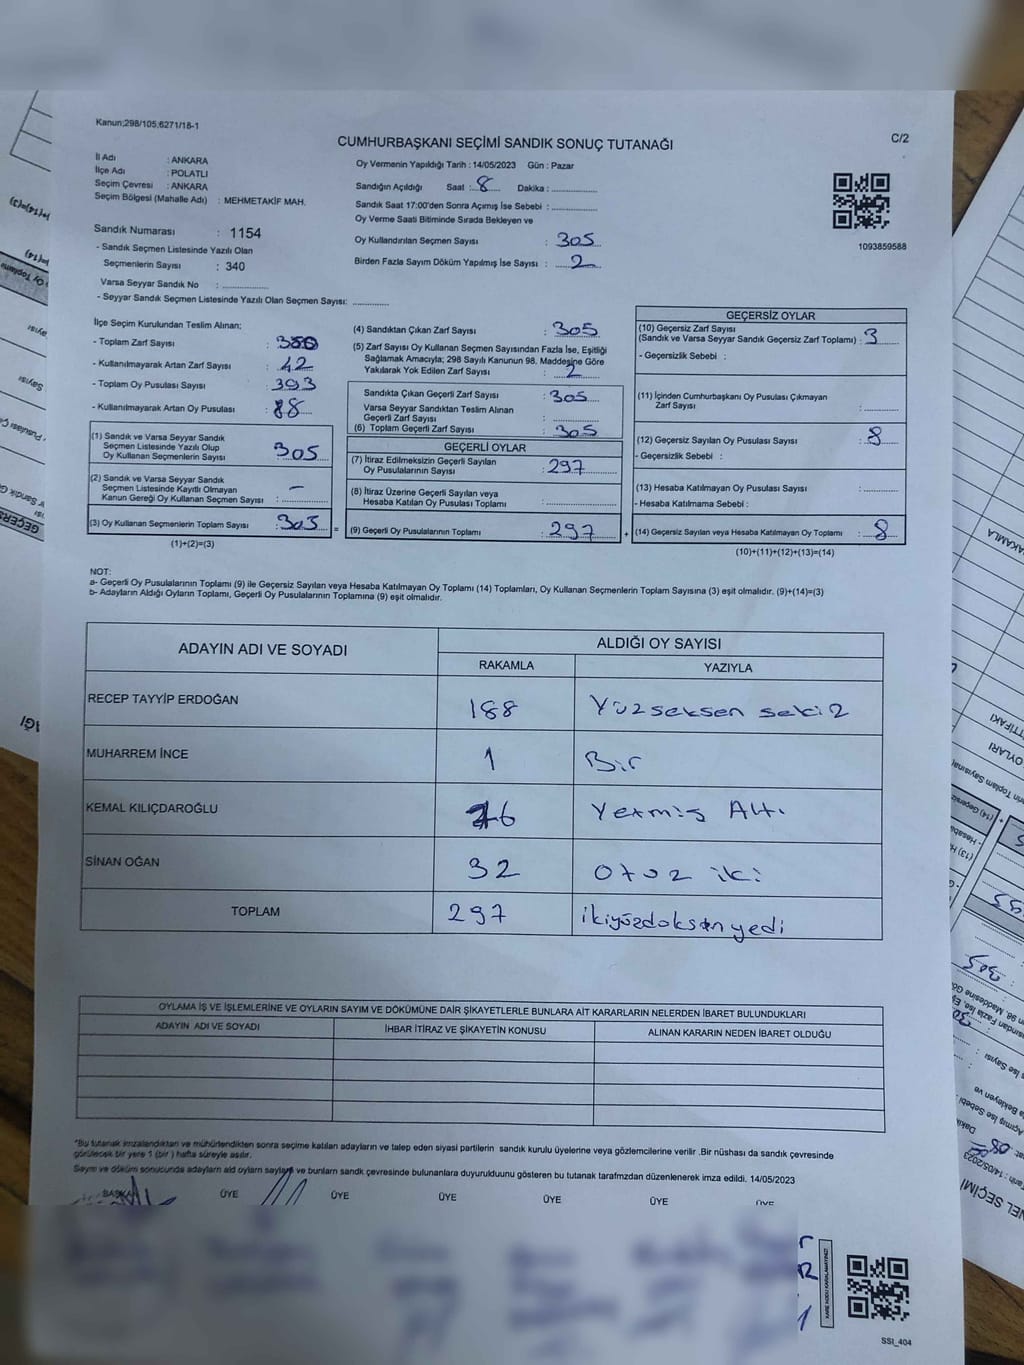 Kanun;298/105,6271/18-1
CUMHURBAŞKANI SEÇİMİ SANDIK SONUÇ TUTANAĞI
C/2
İl Adı : ANKARA
İlçe Adı : POLATLI
Seçim Çevresi : ANKARA
Seçim Bölgesi (Mahalle Adı) : MEHMETAKİF MAH.
Oy Vermenin Yapıldığı Tarih : 14/05/2023 Gün : Pazar
Sandığın Açıldığı Saat : 8 Dakika :
Sandık Saat 17:00'den Sonra Açımış İse Sebebi :
Oy Verme Saati Bitiminde Sırada Bekleyen ve
Oy Kullandırılan Seçmen Sayısı : 305
Birden Fazla Sayım Döküm Yapılmış İse Sayısı : 2
1093859588
Sandık Numarası : 1154
- Sandık Seçmen Listesinde Yazılı Olan
Seçmenlerin Sayısı : 340
Varsa Seyyar Sandık No :
- Seyyar Sandık Seçmen Listesinde Yazılı Olan Seçmen Sayısı:
İlçe Seçim Kurulundan Teslim Alınan;
- Toplam Zarf Sayısı :
- Kullanılmayarak Artan Zarf Sayısı : 42
- Toplam Oy Pusulası Sayısı : 393
- Kullanılmayarak Artan Oy Pusulası : 88
(1) Sandık ve Varsa Seyyar Sandık
Seçmen Listesinde Yazılı Olup
Oy Kullanan Seçmenlerin Sayısı 305
(2) Sandık ve Varsa Seyyar Sandık
Seçmen Listesinde Kayıtlı Olmayan
Kanun Gereği Oy Kullanan Seçmen Sayısı : –
(3) Oy Kullanan Seçmenlerin Toplam Sayısı : 305 =
(1)+(2)=(3)
(4) Sandıktan Çıkan Zarf Sayısı : 305
(5) Zarf Sayısı Oy Kullanan Seçmen Sayısından Fazla İse, Eşitliği
Sağlamak Amacıyla; 298 Sayılı Kanunun 98. Maddesine Göre
Yakılarak Yok Edilen Zarf Sayısı : 2
Sandıkta Çıkan Geçerli Zarf Sayısı : 305
Varsa Seyyar Sandıktan Teslim Alınan
Geçerli Zarf Sayısı :
(6) Toplam Geçerli Zarf Sayısı : 305
GEÇERLİ OYLAR
(7) İtiraz Edilmeksizin Geçerli Sayılan
Oy Pusulalarının Sayısı : 297
(8) İtiraz Üzerine Geçerli Sayılan veya
Hesaba Katılan Oy Pusulası Toplamı :
(9) Geçerli Oy Pusulalarının Toplamı : 297 +
GEÇERSİZ OYLAR
(10) Geçersiz Zarf Sayısı
(Sandık ve Varsa Seyyar Sandık Geçersiz Zarf Toplamı) : 3
- Geçersizlik Sebebi :
(11) İçinden Cumhurbaşkanı Oy Pusulası Çıkmayan
Zarf Sayısı :
(12) Geçersiz Sayılan Oy Pusulası Sayısı : 8
- Geçersizlik Sebebi :
(13) Hesaba Katılmayan Oy Pusulası Sayısı :
- Hesaba Katılmama Sebebi :
(14) Geçersiz Sayılan veya Hesaba Katılmayan Oy Toplamı : 8
(10)+(11)+(12)+(13)=(14)
NOT:
a- Geçerli Oy Pusulalarının Toplamı (9) ile Geçersiz Sayılan veya Hesaba Katılmayan Oy Toplamı (14) Toplamları, Oy Kullanan Seçmenlerin Toplam Sayısına (3) eşit olmalıdır. (9)+(14)=(3)
b- Adayların Aldığı Oyların Toplamı, Geçerli Oy Pusulalarının Toplamına (9) eşit olmalıdır.
ADAYIN ADI VE SOYADI
ALDIĞI OY SAYISI
RAKAMLA YAZIYLA
RECEP TAYYİP ERDOĞAN 188 Yüzseksen sekiz
MUHARREM İNCE 1 Bir
KEMAL KILIÇDAROĞLU 76 Yetmiş Altı
SİNAN OĞAN 32 Otuz iki
TOPLAM 297 ikiyüzdoksanyedi
OYLAMA İŞ VE İŞLEMLERİNE VE OYLARIN SAYIM VE DÖKÜMÜNE DAİR ŞİKAYETLERLE BUNLARA AİT KARARLARIN NELERDEN İBARET BULUNDUKLARI
ADAYIN ADI VE SOYADI İHBAR İTİRAZ VE ŞİKAYETİN KONUSU ALINAN KARARIN NEDEN İBARET OLDUĞU
*Bu tutanak imzalandıktan ve mühürlendikten sonra seçime katılan adayların ve talep eden siyasi partilerin sandık kurulu üyelerine veya gözlemcilerine verilir .Bir nüshası da sandık çevresinde
görülecek bir yere 1 (bir ) hafta süreyle asılır.
Sayım ve döküm sonucunda adayların aldı oyların sayları ve bunların sandk çevresinde bulunanlara duyurulduunu gösteren bu tutanak tarafmzdan düzenlenerek imza edildi. 14/05/2023
BAŞKAN ÜYE ÜYE ÜYE ÜYE ÜYE ÜYE
SSI_404